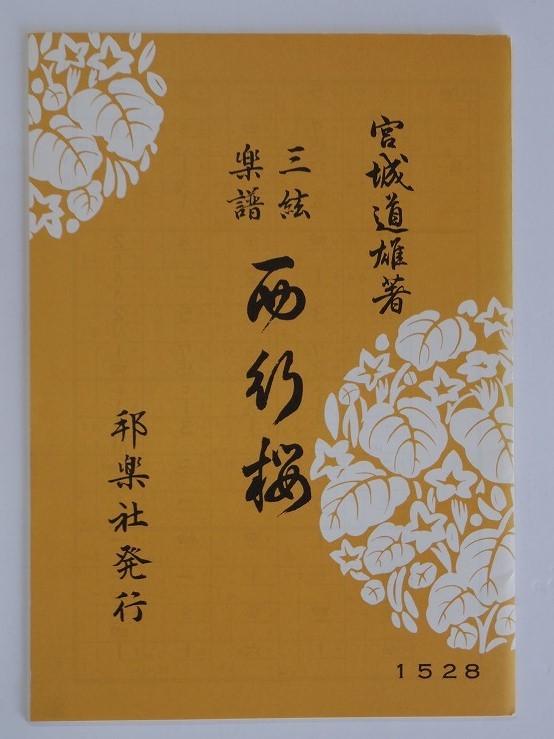 宮城道雄著
三絃
楽譜
西行桜
邦楽社発行
1528